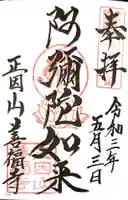 奉拝
令和三年
五月三日
阿彌陀如来
正因山善福寺